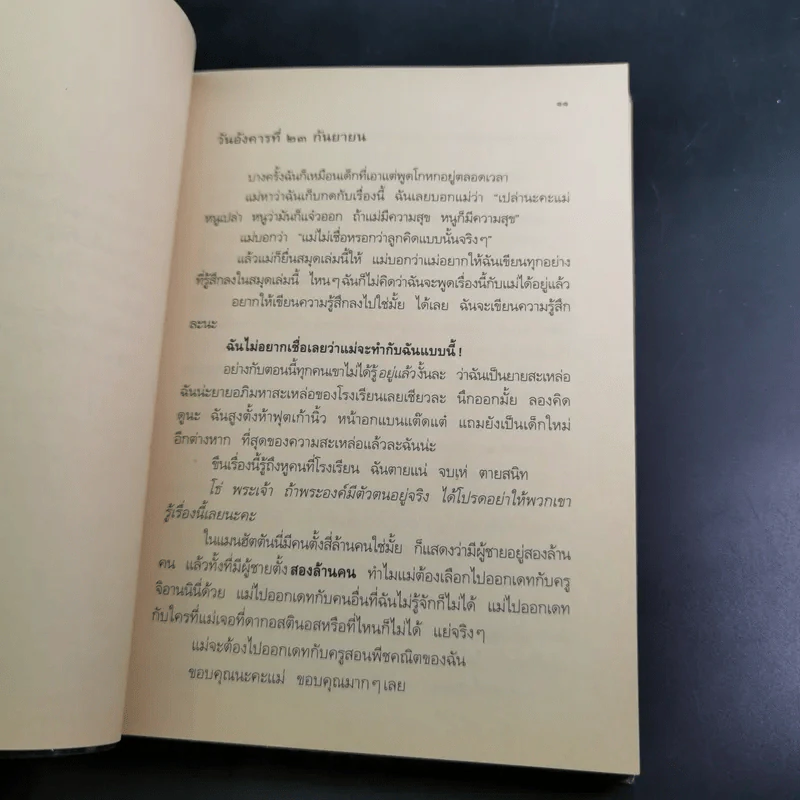 ๑๑
วันอังคารที่ ๒๓ กันยายน
บางครั้งฉันก็เหมือนเด็กที่เอาแต่พูดโกหกอยู่ตลอดเวลา
แม่หาว่าฉันเก็บกดกับเรื่องนี้ ฉันเลยบอกแม่ว่า “เปล่านะคะแม่
หนูเปล่า หนูว่ามันก็แจ๋วออก ถ้าแม่มีความสุข หนูก็มีความสุข”
แม่บอกว่า “แม่ไม่เชื่อหรอกว่าลูกคิดแบบนั้นจริงๆ”
แล้วแม่ก็ยื่นสมุดเล่มนี้ให้ แม่บอกว่าแม่อยากให้ฉันเขียนทุกอย่าง
ที่รู้สึกลงในสมุดเล่มนี้ ไหนๆ ฉันก็ไม่คิดว่าฉันจะพูดเรื่องนี้กับแม่ได้อยู่แล้ว
อยากให้เขียนความรู้สึกลงไปใช่มั้ย ได้เลย ฉันจะเขียนความรู้สึก
ละนะ
ฉันไม่อยากเชื่อเลยว่าแม่จะทำกับฉันแบบนี้!
อย่างกับตอนนี้ทุกคนเขาไม่ได้รู้อยู่แล้วงั้นละ ว่าฉันเป็นยายสะเหล่อ
ฉันน่ะยายอภิมหาสะเหล่อของโรงเรียนเลยเชียวละ นึกออกมั้ย ลองคิด
ดูนะ ฉันสูงตั้งห้าฟุตเก้านิ้ว หน้าอกแบนแต๊ดแต๋ แถมยังเป็นเด็กใหม่
อีกต่างหาก ที่สุดของความสะเหล่อแล้วละฉันน่ะ
ขืนเรื่องนี้รู้ถึงหูคนที่โรงเรียน ฉันตายแน่ จบเห่ ตายสนิท
โธ่ พระเจ้า ถ้าพระองค์มีตัวตนอยู่จริง ได้โปรดอย่าให้พวกเขา
รู้เรื่องนี้เลยนะคะ
ในแมนฮัตตันนี่มีคนตั้งสี่ล้านคนใช่มั้ย ก็แสดงว่ามีผู้ชายอยู่สองล้าน
คน แล้วทั้งที่มีผู้ชายตั้งสองล้านคน ทำไมแม่ต้องเลือกไปออกเดทกับครู
จิอานนินี่ด้วย แม่ไปออกเดทกับคนอื่นที่ฉันไม่รู้จักก็ไม่ได้ แม่ไปออกเดท
กับใครที่แม่เจอที่ดากอสตินอสหรือที่ไหนก็ไม่ได้ แย่จริงๆ
แม่จะต้องไปออกเดทกับครูสอนพีชคณิตของฉัน
ขอบคุณนะคะแม่ ขอบคุณมากๆ เลย